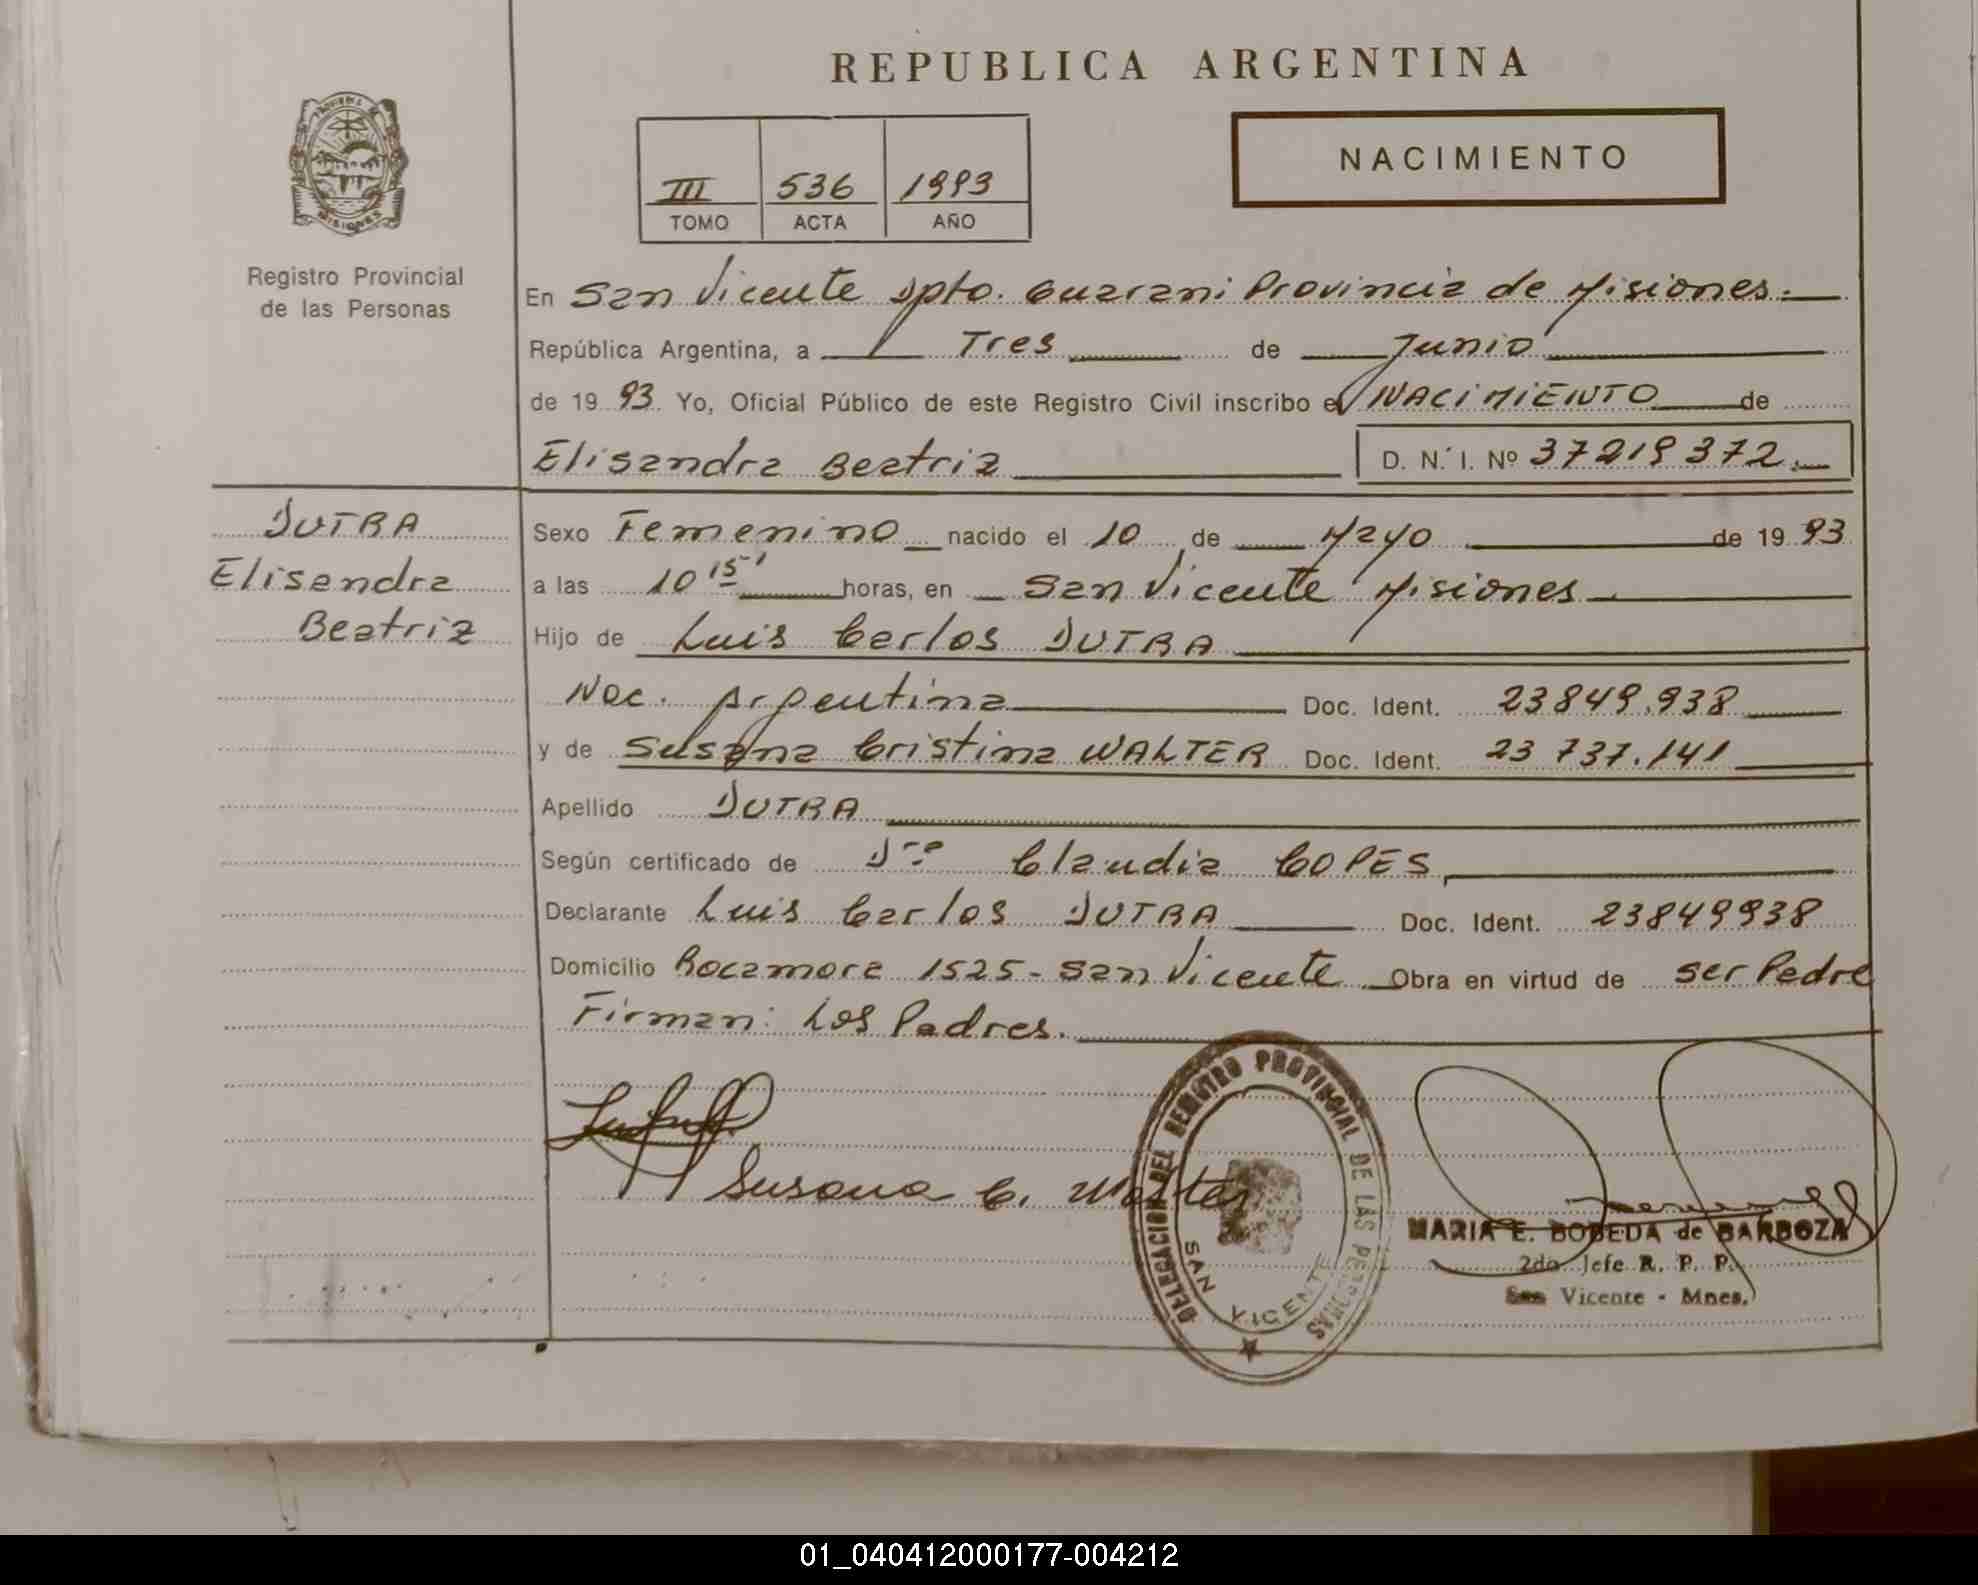 REPUBLICA ARGENTINA
NACIMIENTO
III 536 1993
TOMO ACTA AÑO
PROVINCIA DE MISIONES
Registro Provincial
de las Personas
En San Vicente Dpto. Guarani Provincia de Misiones.
República Argentina, a Tres de Junio
de 19 93. Yo, Oficial Público de este Registro Civil inscribo el NACIMIENTO de
Elisandra Beatriz D. N. I. Nº 37219372.
DUTRA
Elisandra
Beatriz
Sexo Femenino nacido el 10 de Mayo de 19 93
a las 10 15' horas, en San Vicente Misiones
Hijo de Luis Carlos DUTRA
Nac. Argentina Doc. Ident. 23849.938
y de Susana Cristina WALTER Doc. Ident. 23 737.141
Apellido DUTRA
Según certificado de Dra Claudia COPES,
Declarante Luis Carlos DUTRA Doc. Ident. 23849938
Domicilio Rocamora 1525- San Vicente Obra en virtud de ser Padre
Firman: Los Padres.
Susana C. Walter
DELEGACION DEL REGISTRO PROVINCIAL DE LAS PERSONAS
SAN VICENTE
MARIA E. BOBEDA de BARBOZA
2do Jefe R. P. P.
San Vicente - Mnes.
01_040412000177-004212